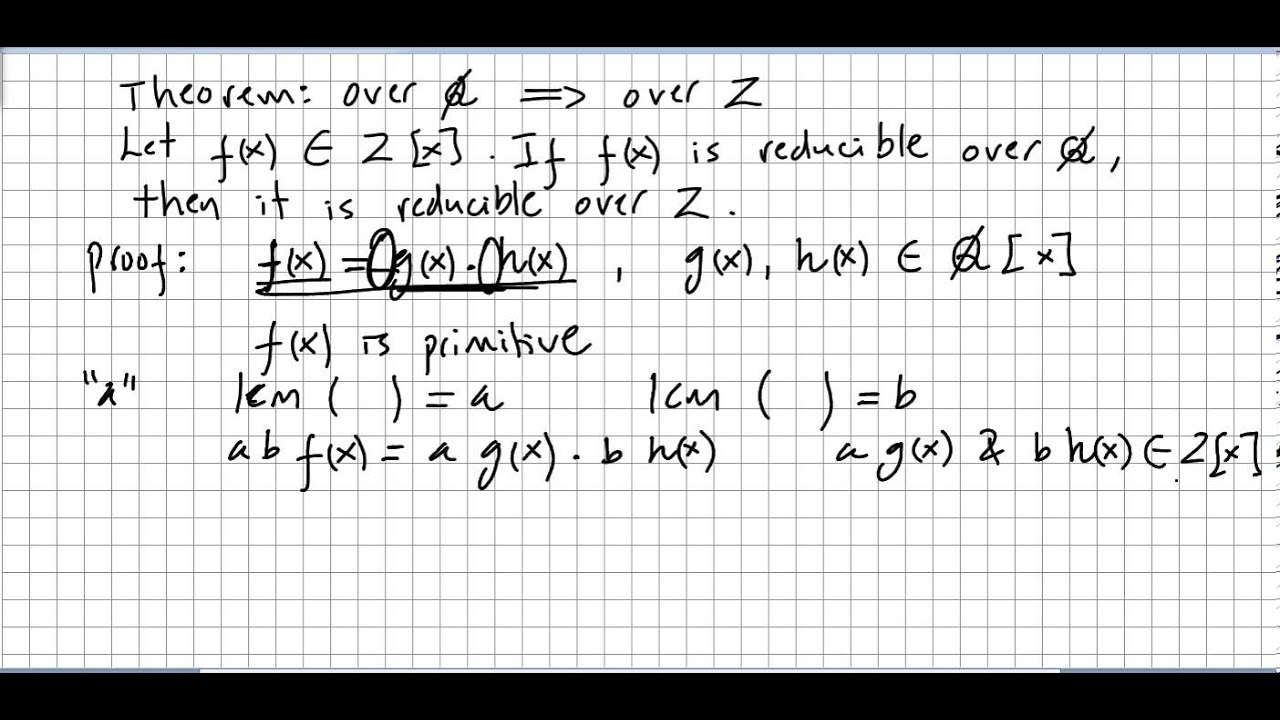 Theorem: over Q ⟹ over Z
Let f(x) ∈ Z [x]. If f(x) is reducible over Q,
then it is reducible over Z.
proof: f(x) = g(x) · h(x) , g(x), h(x) ∈ Q [x]
f(x) is primitive
lcm ( ) = a lcm ( ) = b
a b f(x) = a g(x) · b h(x) a g(x) & b h(x) ∈ Z[x]